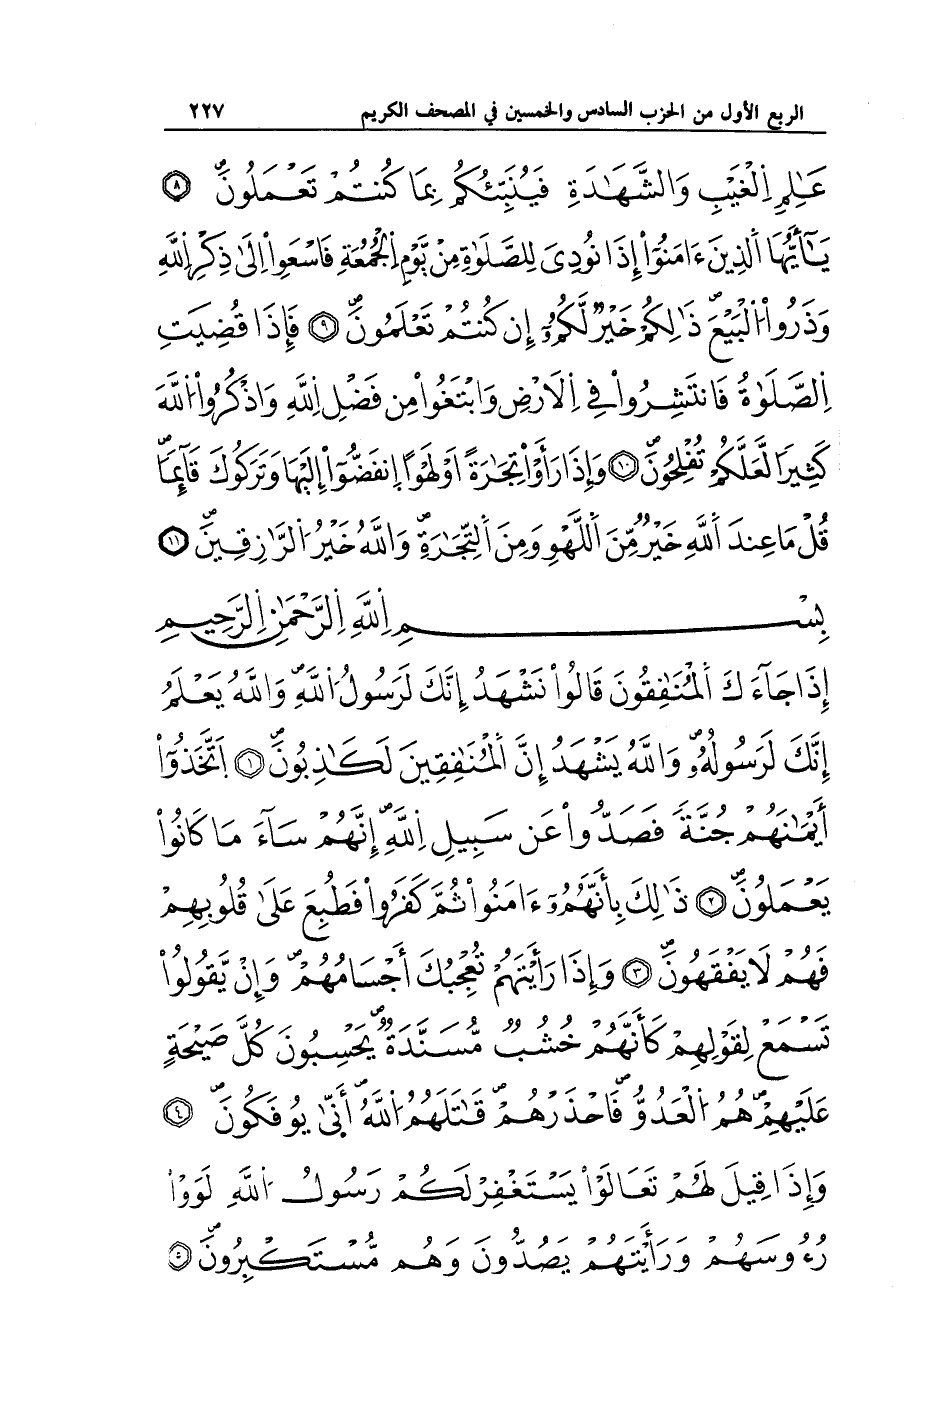 الربع الأول من الحزب السادس والخمسين في المصحف الكريم ٢٢٧
عَٰلِمِ اِ۬لْغَيْبِ وَالشَّهَٰدَةِ فَيُنَبِّئُكُم بِمَا كُنتُمْ تَعْمَلُونَۖ ٨
يَٰٓأَيُّهَا اَ۬لذِينَ ءَامَنُوٓاْ إِذَا نُودِيَ لِلصَّلَوٰةِ مِنْ يَّوْمِ اِ۬لْجُمُعَةِ فَاسْعَوِاْ اِلَىٰ ذِكْرِ اِ۬للَّهِ
وَذَرُواْ اُ۬لْبَيْعَۖ ذَٰلِكُمْ خَيْرٌ لَّكُمُۥٓ إِن كُنتُمْ تَعْلَمُونَۖ ٩ فَإِذَا قُضِيَتِ
اِ۬لصَّلَوٰةُ فَانتَشِرُواْ فِي اِ۬لَارْضِ وَابْتَغُواْ مِن فَضْلِ اِ۬للَّهِ وَاذْكُرُواْ اُ۬للَّهَ
كَثِيرًا لَّعَلَّكُمْ تُفْلِحُونَۖ ١٠ وَإِذَا رَأَوْاْ تِجَٰرَةً اَوْ لَهْوًا اِ۪نفَضُّوٓاْ إِلَيْهَا وَتَرَكُوكَ قَآئِمًاۖ
قُلْ مَا عِندَ اَ۬للَّهِ خَيْرٌ مِّنَ اَ۬للَّهْوِ وَمِنَ اَ۬لتِّجَٰرَةِۖ وَاللَّهُ خَيْرُ اُ۬لرَّٰزِقِينَۖ ١١
بِسْمِ اِ۬للَّهِ اِ۬لرَّحْمَٰنِ اِ۬لرَّحِيمِ
إِذَا جَآءَكَ اَ۬لْمُنَٰفِقُونَ قَالُواْ نَشْهَدُ إِنَّكَ لَرَسُولُ اُ۬للَّهِۖ وَاللَّهُ يَعْلَمُ
إِنَّكَ لَرَسُولُهُۥۖ وَاللَّهُ يَشْهَدُ إِنَّ اَ۬لْمُنَٰفِقِينَ لَكَٰذِبُونَۖ ١ اَ۪تَّخَذُوٓاْ
أَيْمَٰنَهُمْ جُنَّةً فَصَدُّواْ عَن سَبِيلِ اِ۬للَّهِۖ إِنَّهُمْ سَآءَ مَا كَانُواْ
يَعْمَلُونَۖ ٢ ذَٰلِكَ بِأَنَّهُمُۥٓ ءَامَنُواْ ثُمَّ كَفَرُواْ فَطُبِعَ عَلَىٰ قُلُوبِهِمْ
فَهُمْ لَا يَفْقَهُونَۖ ٣ وَإِذَا رَأَيْتَهُمْ تُعْجِبُكَ أَجْسَامُهُمْۖ وَإِنْ يَّقُولُواْ
تَسْمَعْ لِقَوْلِهِمْ كَأَنَّهُمْ خُشُبٌ مُّسَنَّدَةٌۖ يَحْسِبُونَ كُلَّ صَيْحَةٍ
عَلَيْهِمْۖ هُمُ اُ۬لْعَدُوُّ فَاحْذَرْهُمْۖ قَٰتَلَهُمُ اُ۬للَّهُۖ أَنَّىٰ يُوفَكُونَۖ ٤
وَإِذَا قِيلَ لَهُمْ تَعَالَوْاْ يَسْتَغْفِرْ لَكُمْ رَسُولُ اُ۬للَّهِ لَوَوْاْ
رُءُوسَهُمْ وَرَأَيْتَهُمْ يَصُدُّونَ وَهُم مُّسْتَكْبِرُونَۖ ٥